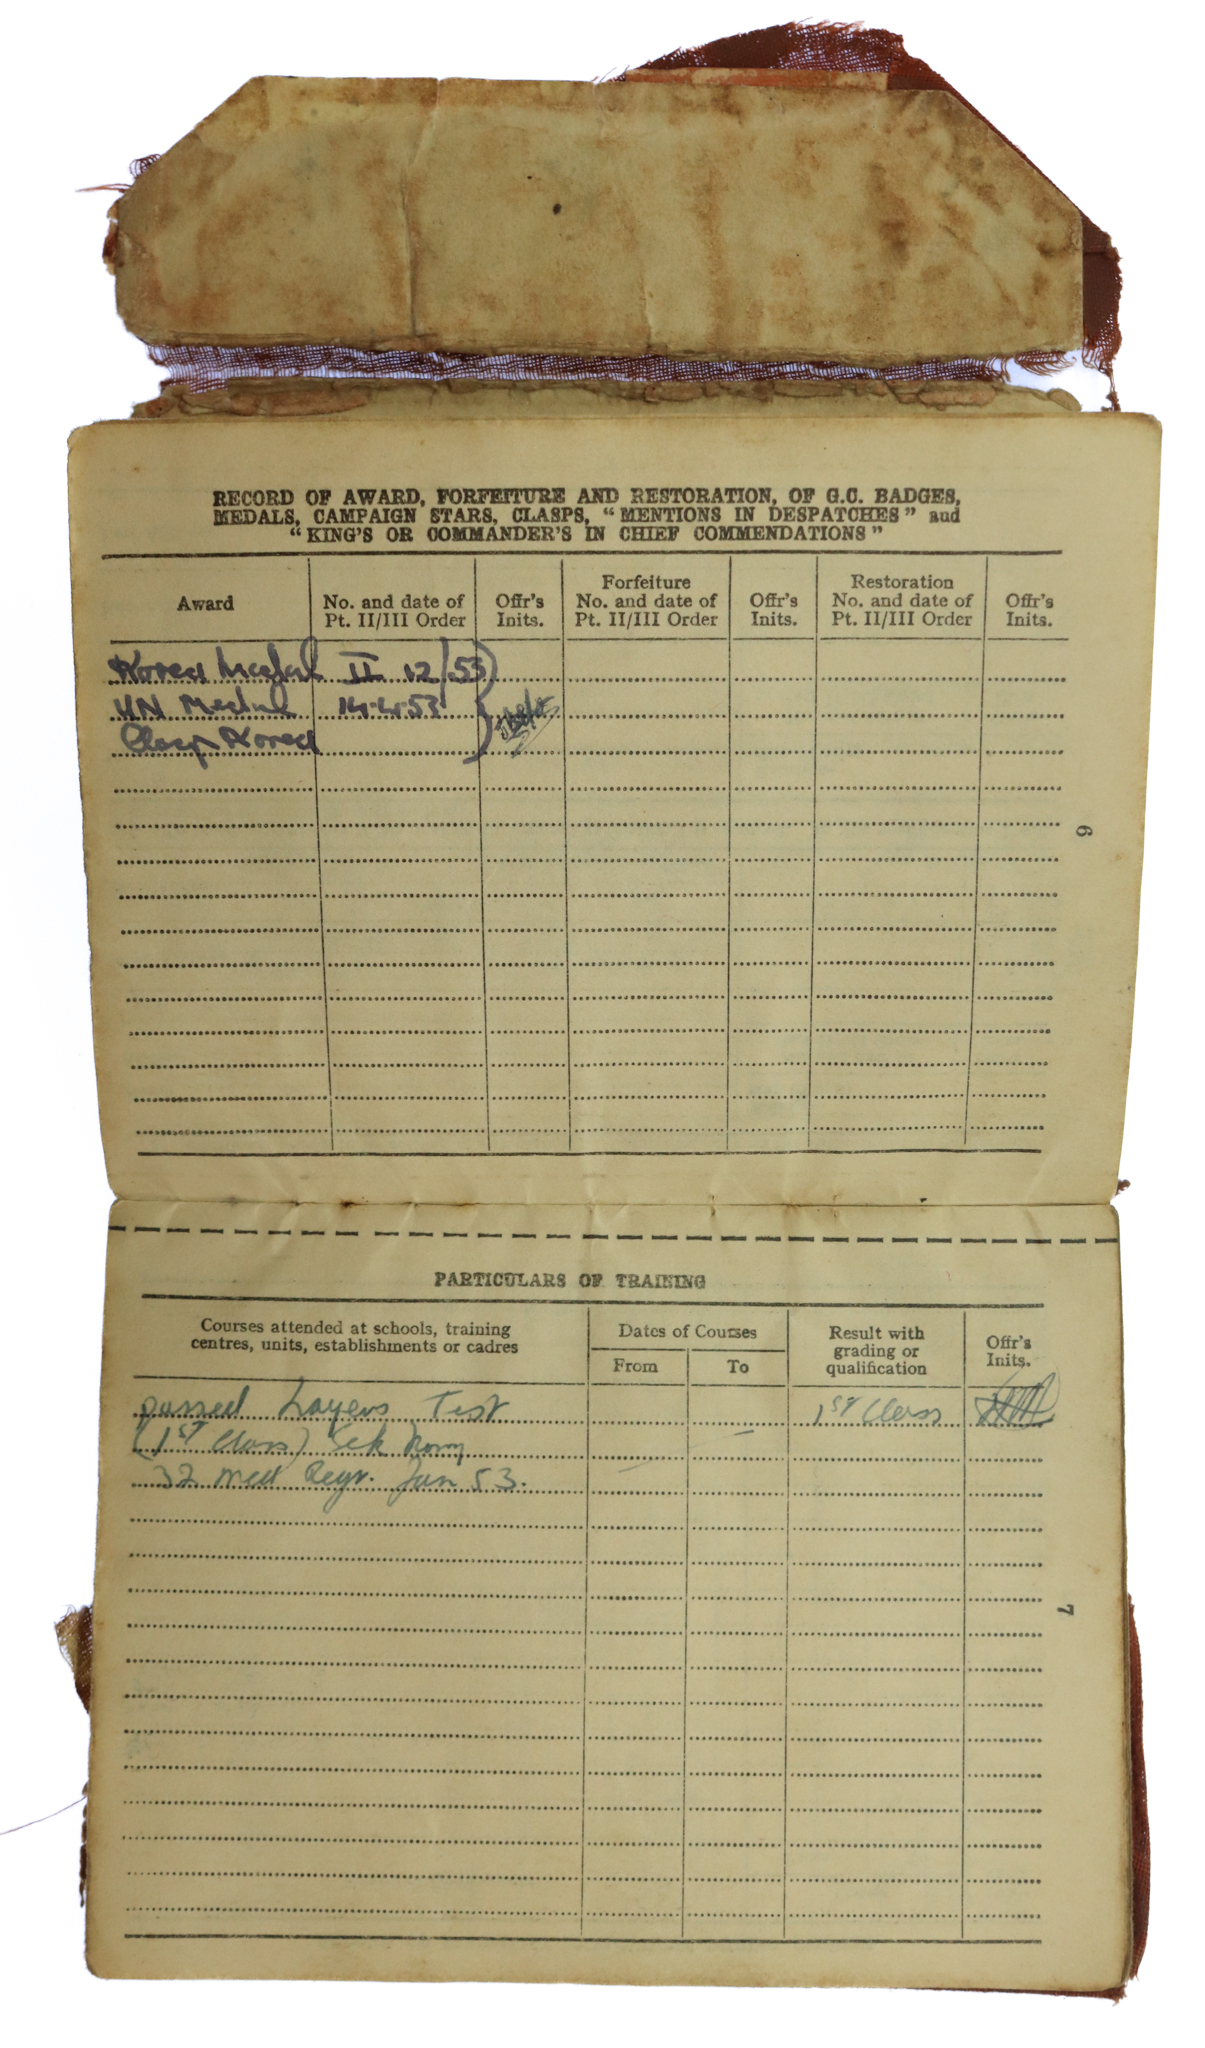 RECORD OF AWARD, FORFEITURE AND RESTORATION, OF G.C. BADGES,
MEDALS, CAMPAIGN STARS, CLASPS, "MENTIONS IN DESPATCHES" and
"KING'S OR COMMANDER'S IN CHIEF COMMENDATIONS"
Award No. and date of Pt. II/III Order Offr's Inits. Forfeiture No. and date of Pt. II/III Order Offr's Inits. Restoration No. and date of Pt. II/III Order Offr's Inits.
Korea Medal II 12/53
UN Medal 14.4.53
Clasp Korea
6
PARTICULARS OF TRAINING
Courses attended at schools, training centres, units, establishments or cadres Dates of Courses From To Result with grading or qualification Offr's Inits.
passed Layers Test 1ST Class
(1ST Class)
32 Med Regt. Jan 53.
7